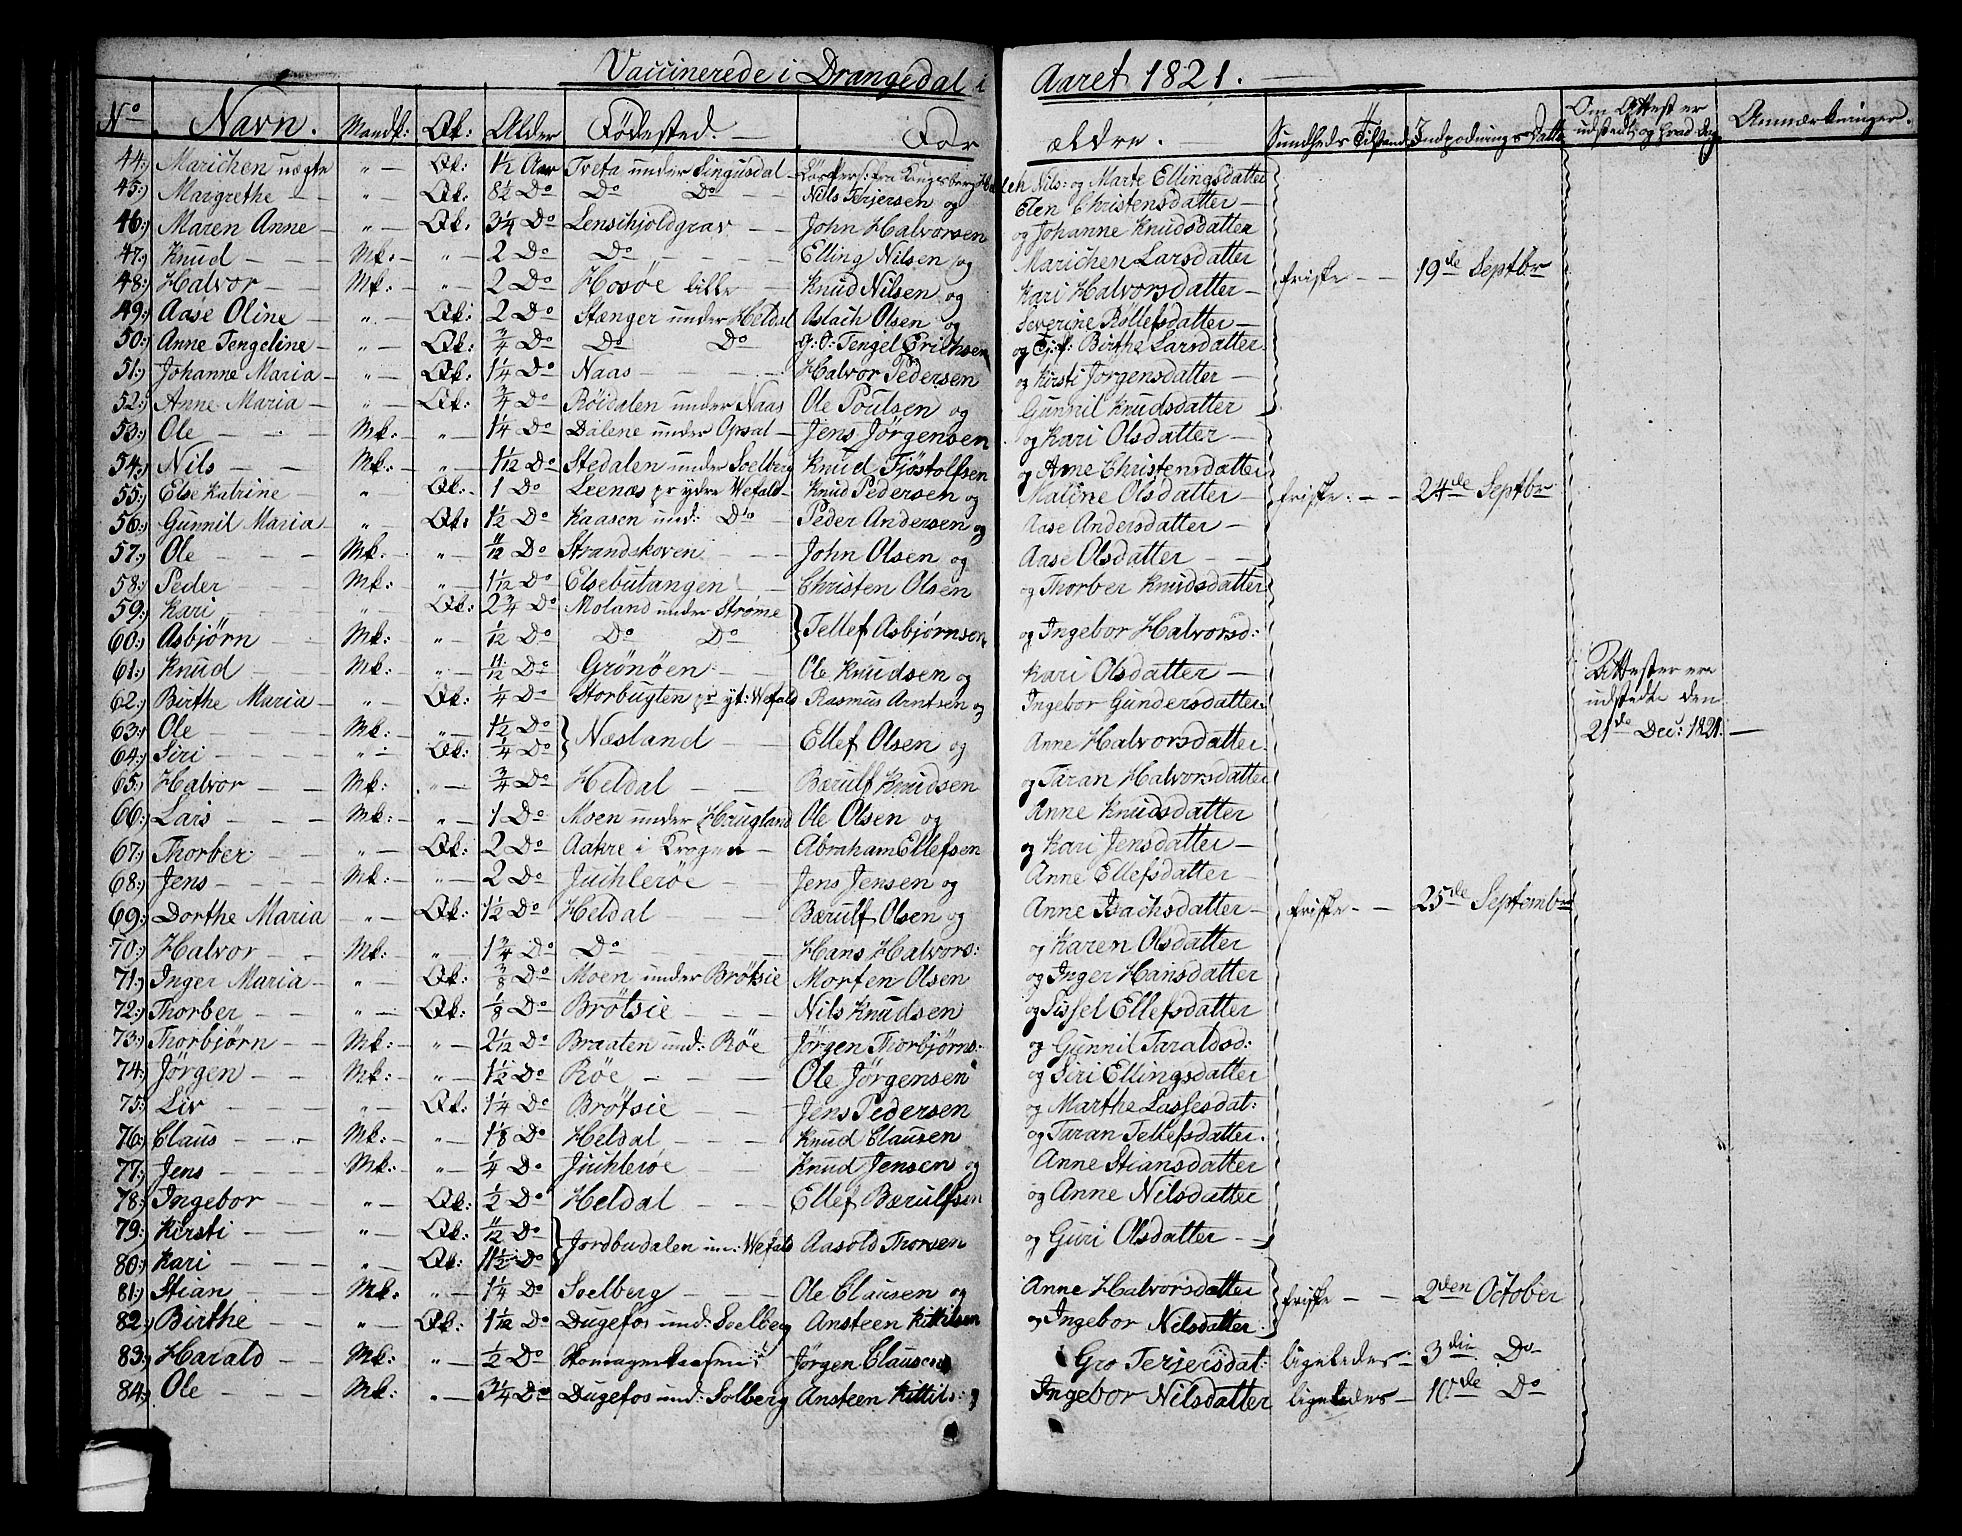 Vaccinerede i Drangedal i Aaret 1821.
No Navn. Mandk: Qk: Alder Fødested. Forældre. Sundheds Tilstand Indpodnings Datto Om Attest er udstedt, og hvad Dag Anmærkninger.
44:) Marichen uægte " Qk: 1/2 Aar Tveta under Singusdal Nils: og Marte Ellingsdatter
45:) Margrethe " Qk: 8 1/2 Do Do Do Nils Terjersen og Elen Christensdatter
46:) Maren Anne " Qk: 3 1/4 Do Lensihjoldgrav John Halvorsen og Johanne Knudsdatter
47:) Knud Mk: " 2 Do Do Elling Nilsen og Marichen Larsdatter
48:) Halvor Mk: " 2 Do Hosøe lille Knud Nilsen og Kari Halvorsdatter friske 19de Septbr
49:) Aase Oline " Qk: 2 Do Stænger under Heldal Aslach Olsen og Severine Rollefsdatter
50:) Anne Tengeline " Qk: 3/4 Do Do Do Tengel Erichsen og Birthe Larsdatter
51:) Johanne Maria " Qk: 1/4 Do Naas Halvor Pedersen og Kirsti Jørgensdatter
52:) Anne Maria " Qk: 3/4 Do Røidalen under Naas Ole Poulsen og Gunnil Knudsdatter
53:) Ole Mk: " 1/4 Do Dalene under Opsal Jens Jörgensen og Kari Olsdatter
54:) Nils Mk: " 1/12 Do Stedalen under Soelberg Knud Fiöstolfsen og Anne Christensdatter
55:) Else Katrine " Qk: 1 Do Leenæs pr ydre Wefald Knud Pedersen og Maline Olsdatter friske: 24de Septbr
56:) Gunnil Maria " Qk: 1 1/2 Do Kaasen und: Do Peder Andersen og Aase Andersdatter
57:) Ole Mk: " 11/12 Do Strandskoven John Olsen og Aase Olsdatter
58:) Peder Mk: " 1 1/12 Do Elsebutangen Christen Olsen og Thorber Knudsdatter
59:) Kari " Qk: 2 3/4 Do Moland under Strøme
60:) Asbjørn Mk: " 1/12 Do Do Do } Tellef Asbjørnsen og Ingebor Halvorsd:
61:) Knud Mk: " 11/12 Do Grönöen Ole Knudsen og Kari Olsdatter
62:) Birthe Maria " Qk: 1/4 Do Storbugten pr yt: Wefald Rasmus Arntsen og Ingebor Gundersdatter
Attester ere udstedte den 21de Dec: 1821.
63:) Ole Mk: " 1 1/2 Do
64:) Siri " Qk: 1/4 Do } Næsland Ellef Olsen og Anne Halvorsdatter
65:) Halvor Mk: " 3/4 Do Heldal Bærulf Knudsen og Taran Halvorsdatter
66:) Lars Mk: " 1 Do Moen under Haugland Ole Olsen og Anne Knudsdatter
67:) Thorber " Qk: 2 Do Aakre i Krogen Abraham Ellefsen og Kari Jensdatter
68:) Jens Mk: " 2 Do Juchlerøe Jens Jensen og Anne Ellefsdatter
69:) Dorthe Maria " Qk: 1 1/2 Do Heldal Bærulf Olsen og Anne Isachsdatter friske 25de Septembr
70:) Halvor Mk: " 1 3/4 Do Do Hans Halvors: og Karen Olsdatter
71:) Inger Maria " Qk: 3/8 Do Moen under Brötsie Morten Olsen og Inger Hansdatter
72:) Thorber " Qk: 1/8 Do Brötsie Nils Knudsen og Sissel Ellefsdatter
73:) Thorbjørn Mk: " 2 1/12 Do Braaten und: Röe Jörgen Thorbjørns: og Gunnil Taraldsd:
74:) Jørgen Mk: " 1 1/2 Do Röe Ole Jörgensen og Siri Ellingsdatter
75:) Liv " Qk: 1/4 Do Brötsie Jens Pedersen og Marthe Lassesdat:
76:) Claus Mk: " 1 1/8 Do Heldal Knud Clausen og Taran Tellefsdatter.
77:) Jens Mk: " 1/4 Do Juchlerøe Knud Jensen og Anne Stiansdatter
78:) Ingebor " Qk: 1/2 Do Heldal Ellef Bærulfsen og Anne Nilsdatter
79:) Kirsti " Qk: 11/12 Do
80:) Kari " Qk: 11 1/2 Do } Jordbudalen un: Wefald Aasold Thorsen og Guri Olsdatter
81:) Stian Mk: " 1 1/4 Do Soelberg Ole Clausen og Anne Halvorsdatter friske 2den October
82:) Birthe " Qk: 1 1/12 Do Dugefos und: Soelberg Ansteen Kittilsen og Ingebor Nilsdatter
83:) Harald Mk: " 1/2 Do Jørgen Clausen Gro Terjersdat: ligeledes 3die Do
84:) Ole Mk: " 3 1/4 Do Dugefos und: Solberg Ansteen Kittils: Ingebor Nilsdatter ligeledes 10de Do